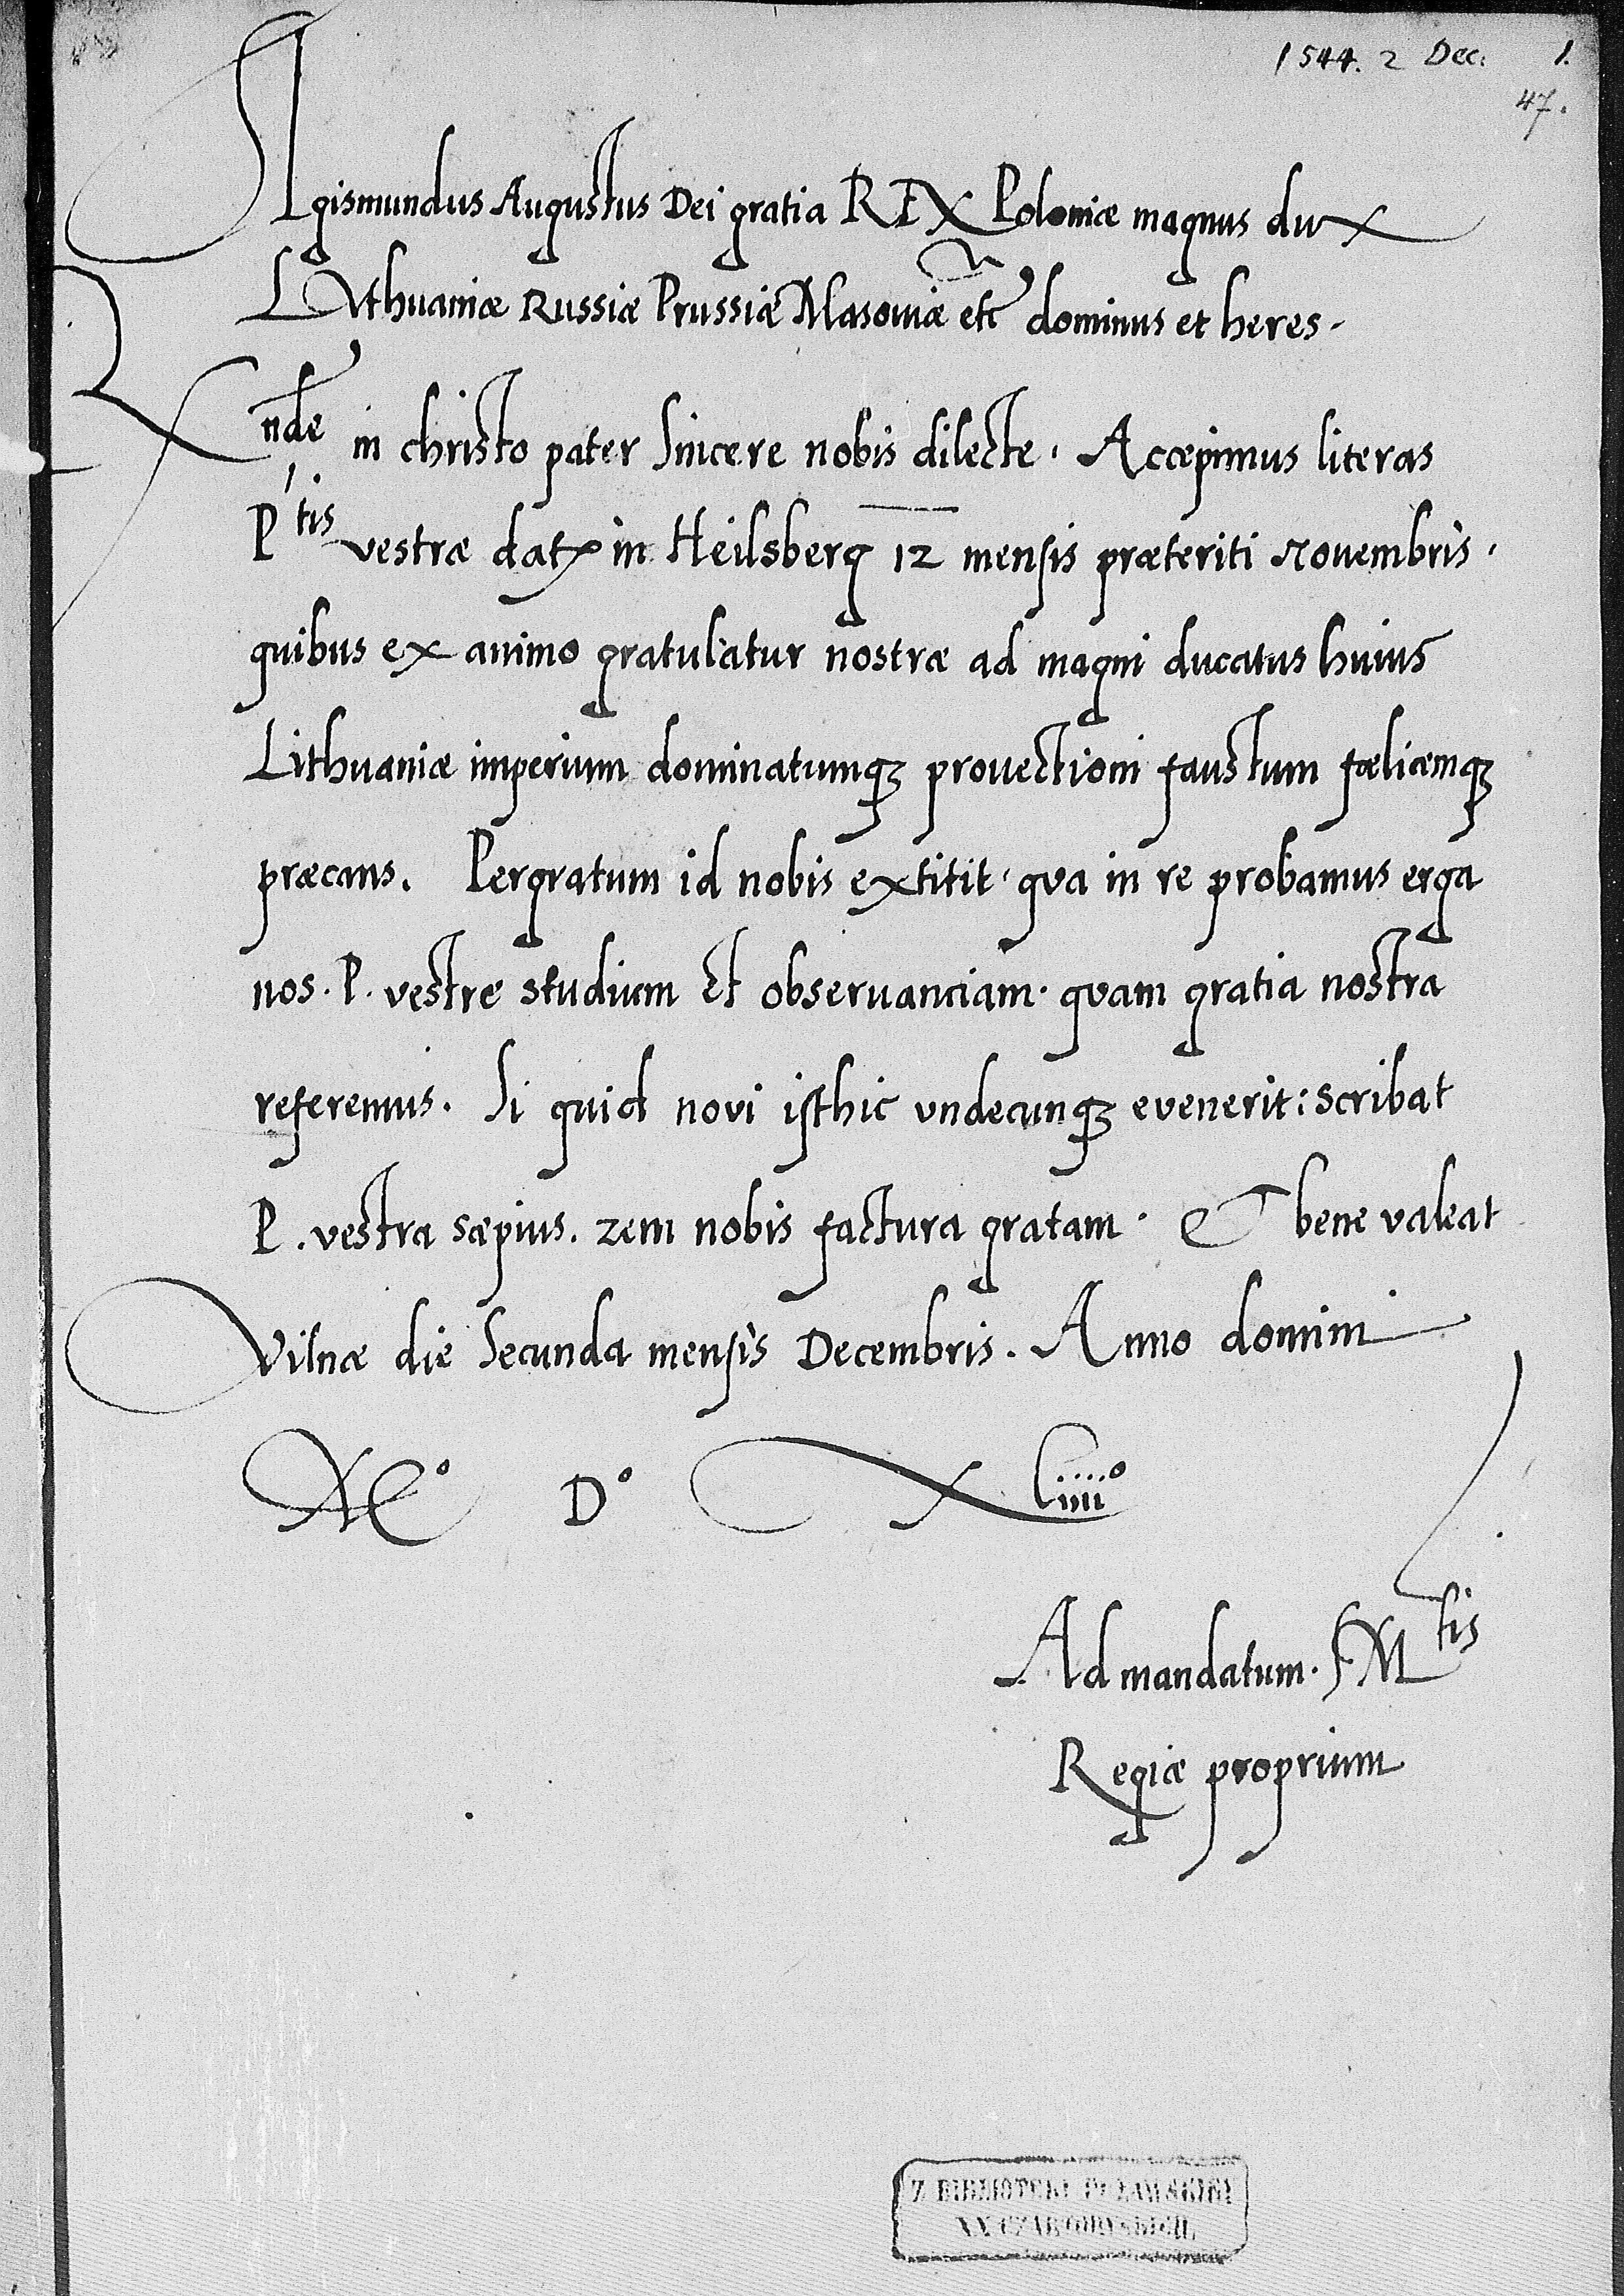 1544. 2 Dec. 1.
47.
SIgismundus Augustus Dei gratia REX Poloniæ magnus dux
LVthuaniæ Russiæ Prussiæ Masouiæ etc dominus et heres.
Rnde in christo pater sincere nobis dilecte. Accepimus literas
Ptis vestræ datas in Heilsberg 12 mensis præteriti Nouembris.
quibus ex animo gratulatur nostræ ad magni ducatus huius
Lithuaniæ imperium dominatumqꝫ prouectioni faustum fœlicemqꝫ
præcans. Pergratum id nobis extitit. qua in re probamus erga
nos. P. vestre studium Et obseruanciam. quam gratia nostra
referemus. Si quid novi isthic vndecunqꝫ evenerit: scribat
P. vestra sæpius. rem nobis factura gratam. Et bene valeat
Vilnæ die Secunda mensis Decembris. Anno domini
Mo Do Xliiiio
Ad mandatum. S Mtis
Regiæ proprium
Z BIBLIOTEKI PUŁAWSKIEJ
XX CZARTORYSKICH.